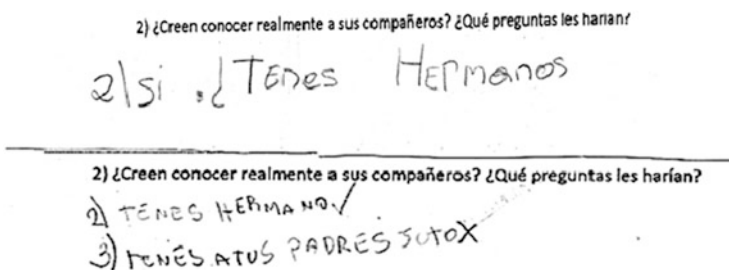 2) ¿Creen conocer realmente a sus compañeros? ¿Qué preguntas les harian?
2) Si . ¿TENES HERMANOS
2) ¿Creen conocer realmente a sus compañeros? ¿Qué preguntas les harían?
2) TENES HERMANO
3) TENÉS A TUS PADRES JUTOX